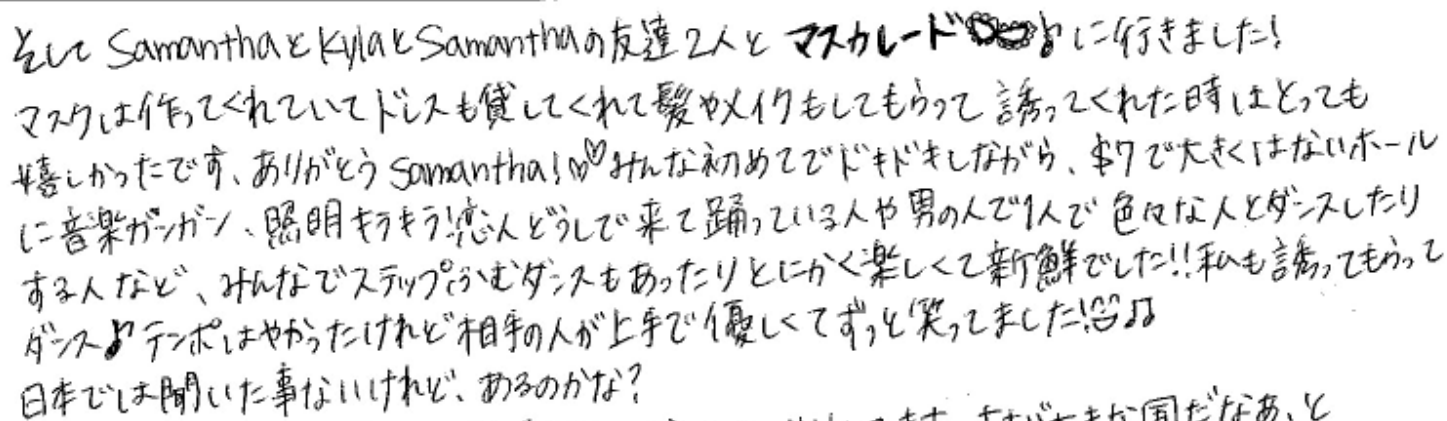 そして SamanthaとKylaとSamanthaの友達2人と マスカレード♪に行きました!
マスクは作ってくれていてドレスも貸してくれて髪やメイクもしてもらって 誘ってくれた時はとっても
嬉しかったです、ありがとう Samantha!♡♡みんな初めてでドキドキしながら、$7で大きくはないホール
に音楽ガンガン、照明キラキラ!恋人どうしで来て踊っている人や男の人で1人で 色々な人とダンスしたり
する人など、みんなでステップふむダンスもあったりとにかく楽しくて新鮮でした!!私も誘ってもらって
ダンス♪テンポはやかったけれど相手の人が上手で優しくてずっと笑ってました!♫
日本では聞いた事ないけれど、あるのかな?
国だなあ、と